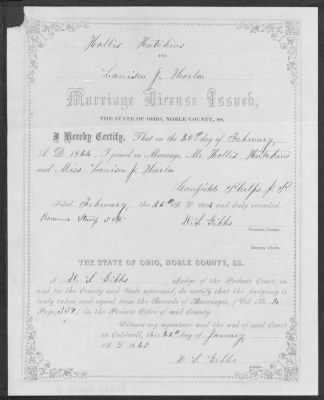 Hollis Hutchins
AND
Louisen J. Harlow
Marriage License Issued,
THE STATE OF OHIO, NOBLE COUNTY, SS.
I Hereby Certify, That on the 20th day of February
A. D. 1864 I joined in Marriage, Mr. Hollis Hutchins
and Miss Louisen J. Harlow
Phelps
Filed February the 25th A. D. 1864 and duly recorded.
Revenue Stamp 5
W. S. Gibbs
Probate Judge.
Deputy Clerk.
THE STATE OF OHIO, NOBLE COUNTY, SS.
I W. S. Gibbs, Judge of the Probate Court, in
and for the County and State aforesaid, do certify that the foregoing is
truly taken and copied from the Records of Marriages, (Vol. No. 2
Page, 339) in the Probate Office of said County.
Witness my signature and the seal of said Court
at Caldwell, this day of January
A. D. 1865
W. S. Gibbs